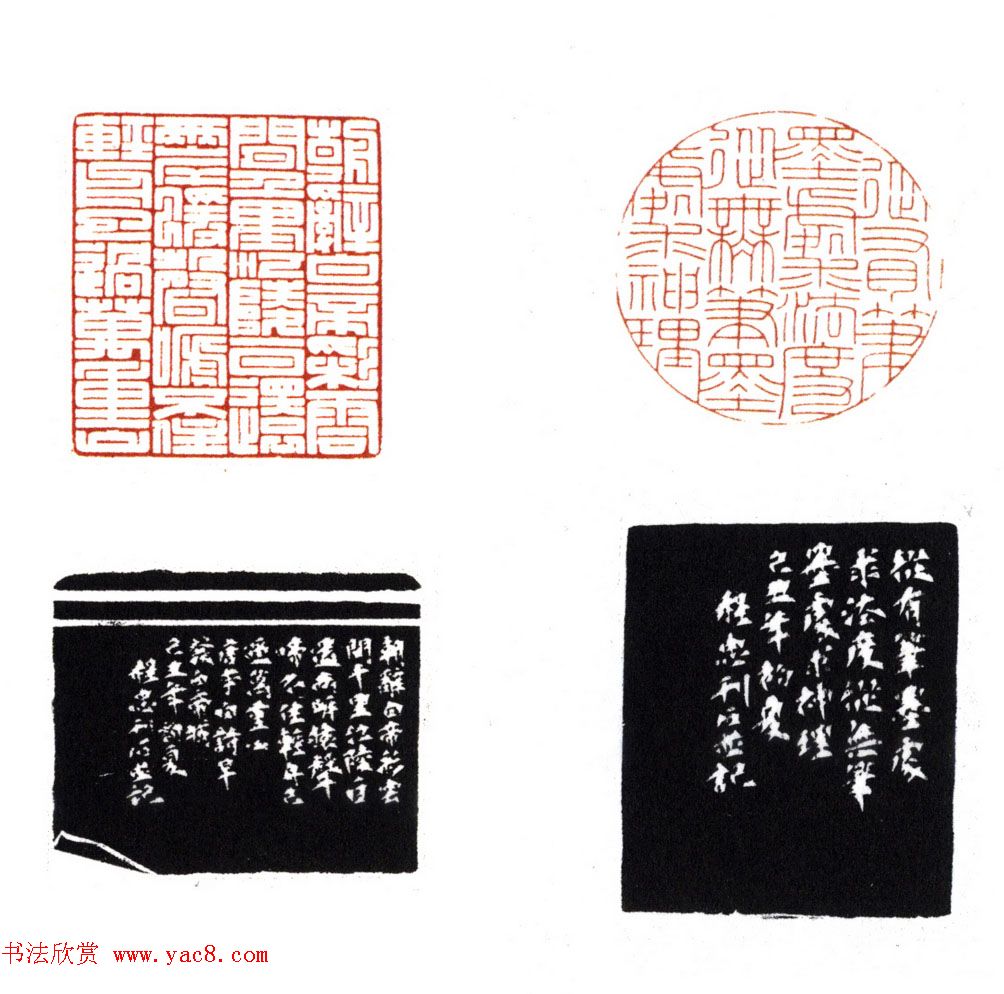 朝辭白帝彩雲
間千里江陵一日還
兩岸猿聲啼不住
輕舟已過萬重山
從有筆
墨處求法度
從無筆墨
處求神理
朝辭白帝彩雲
間千里江陵一日
還兩岸猿聲
啼不住輕舟已
過萬重山
唐李白詩早
發白帝城
己丑年初夏
程忠刊石並記
從有筆墨處
求法度從無筆
墨處求神理
己丑年初夏
程忠刊石並記
书法欣赏 www.yac8.com